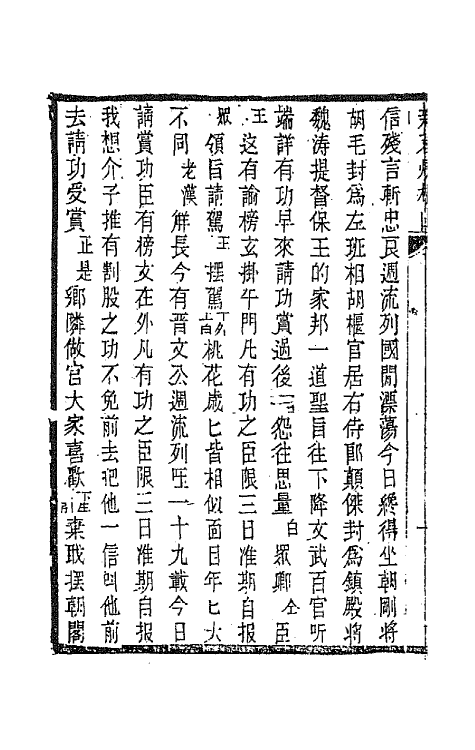 信殘言斬忠良週流列國閒漂蕩今日纔得坐朝剛將
胡毛封爲左班相胡偃官居右侍郎顛傑封爲鎮殿將
魏濤提督保王的家邦一道聖旨往下降文武百官听
端詳有功早來請功賞過後一怨往思量白眾卿仝臣
王这有諭榜玄掛午門凡有功之臣限三日准期自报
眾領旨請駕王摆駕下各上首桃花歲匕皆相似面目年匕大
不同老漢觧長今有晋文公週流列国一十九載今日
請賞功臣有榜文在外凡有功之臣限三日准期自报
我想介子推有割股之功不免前去把他一信叫他前
去請功受賞正是鄉隣做官大家喜歡下生引棄职摆朝閣